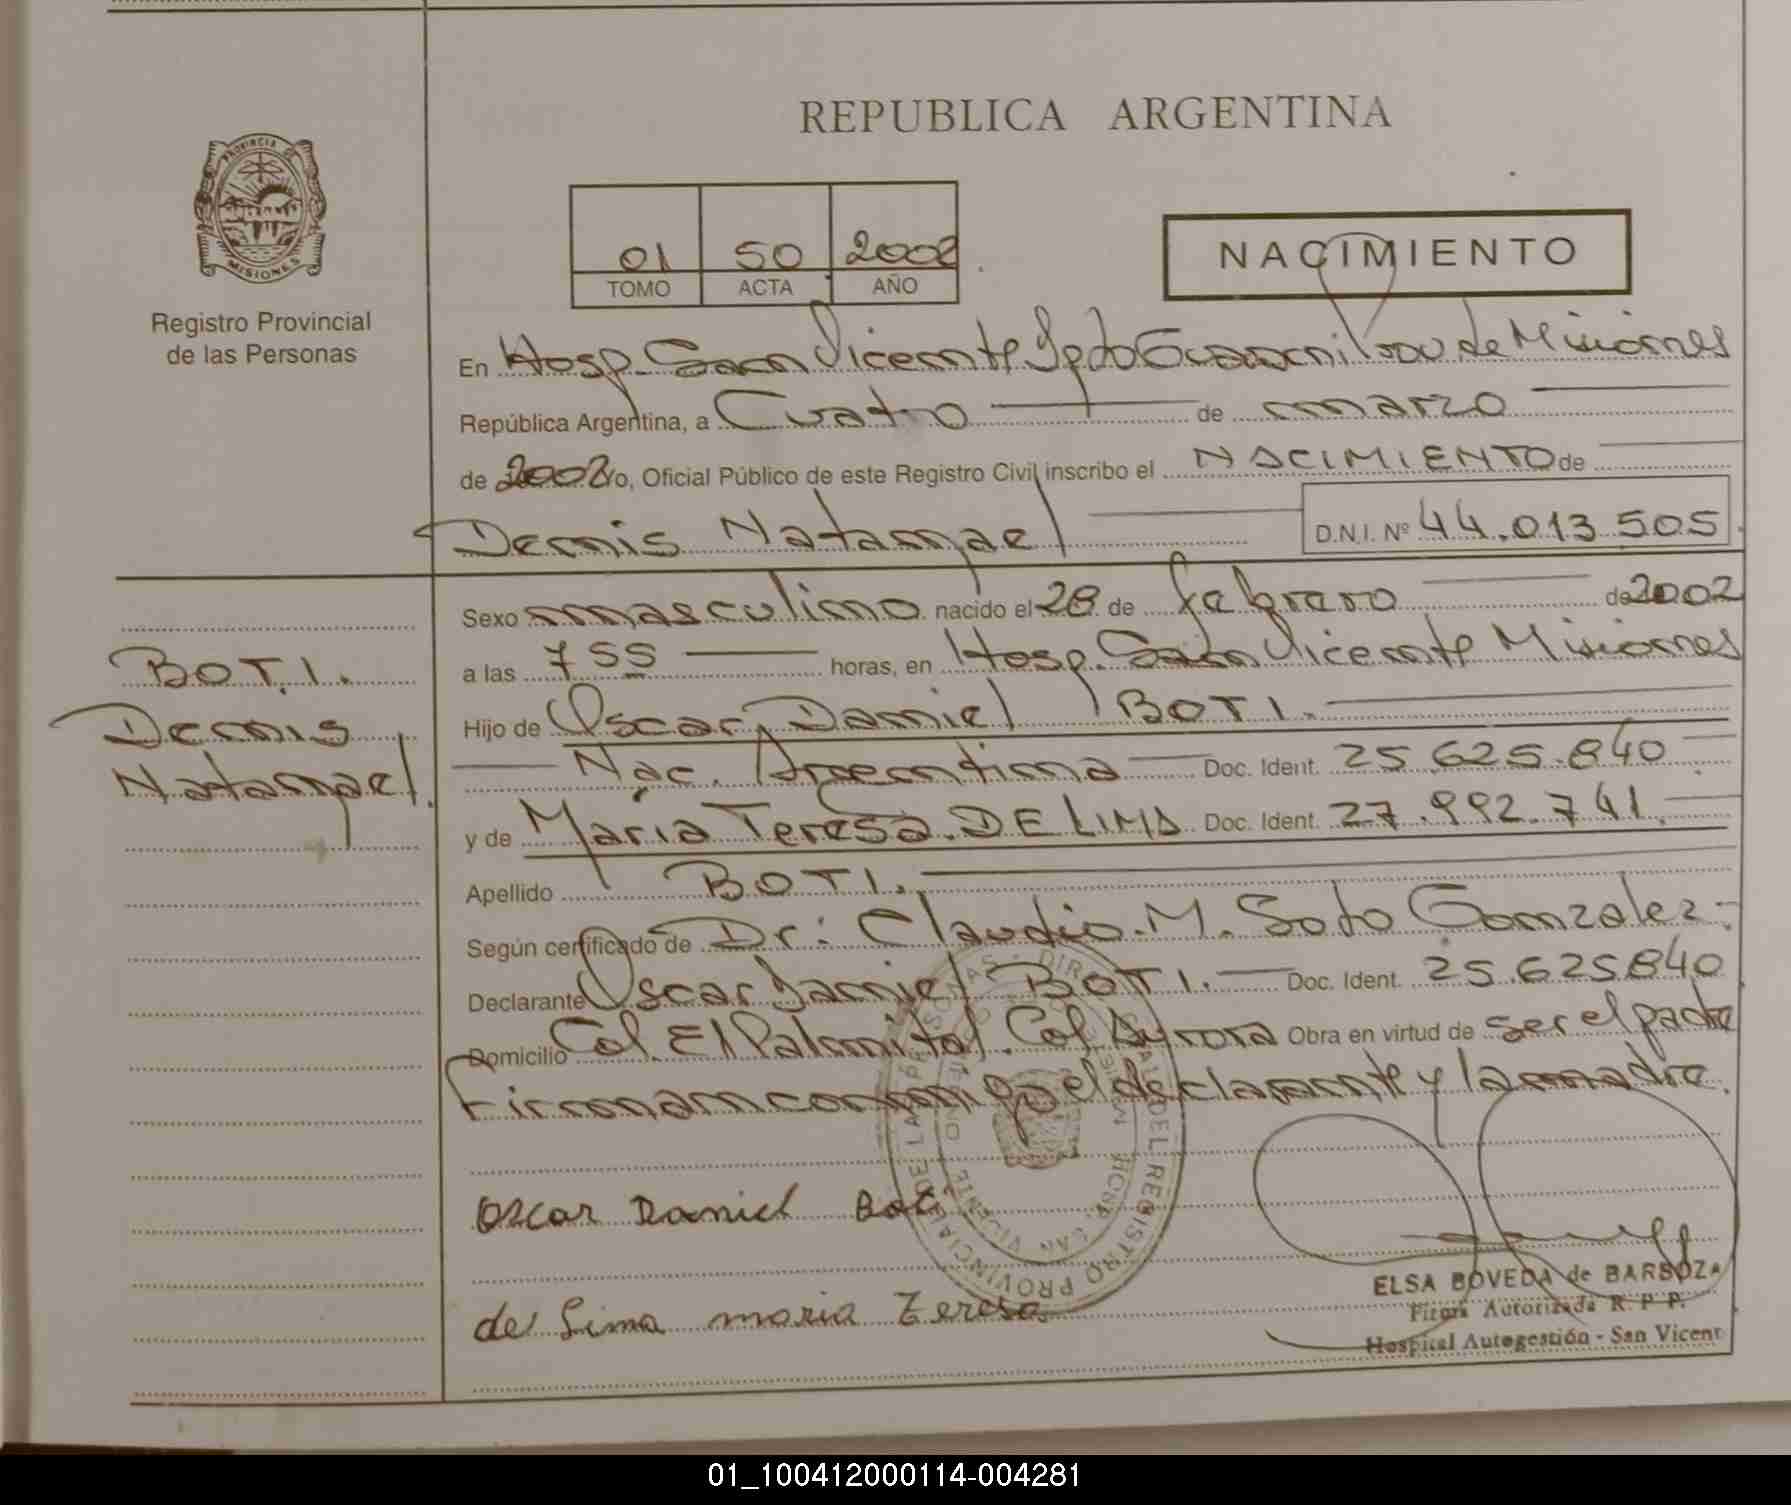 REPUBLICA ARGENTINA
PROVINCIA DE
MISIONES
Registro Provincial
de las Personas
01 50 2002
TOMO ACTA AÑO
NACIMIENTO
En Hosp. San Vicente Dpto Guarani Prov de Misiones
República Argentina, a Cuatro de marzo
de 2002 Yo, Oficial Público de este Registro Civil inscribo el NACIMIENTO de
Dennis Natanael D.N.I. Nº 44.013.505
Sexo masculino nacido el 28 de febrero de 2002
a las 7 55 horas, en Hosp. San Vicente Misiones
Hijo de Oscar Daniel BOTI.
Nac. Argentina Doc. Ident. 25.625.840
y de María Teresa DE LIMA Doc. Ident. 27.992.741.
Apellido BOTI.
Según certificado de Dr: Claudio. M. Soto Gonzalez
Declarante Oscar Daniel BOTI. Doc. Ident. 25.625.840
Domicilio Col. El Palmital. Col Aurora Obra en virtud de ser el padre
Firman conmigo el declarante y la madre.
BOTI.
Dennis
Natanael.
Oscar Daniel Boti
de Lima maria Teresa
ELSA BOVEDA de BARBOZA
Firma Autorizada R. P. P.
Hospital Autogestión - San Vicent
01_100412000114-004281